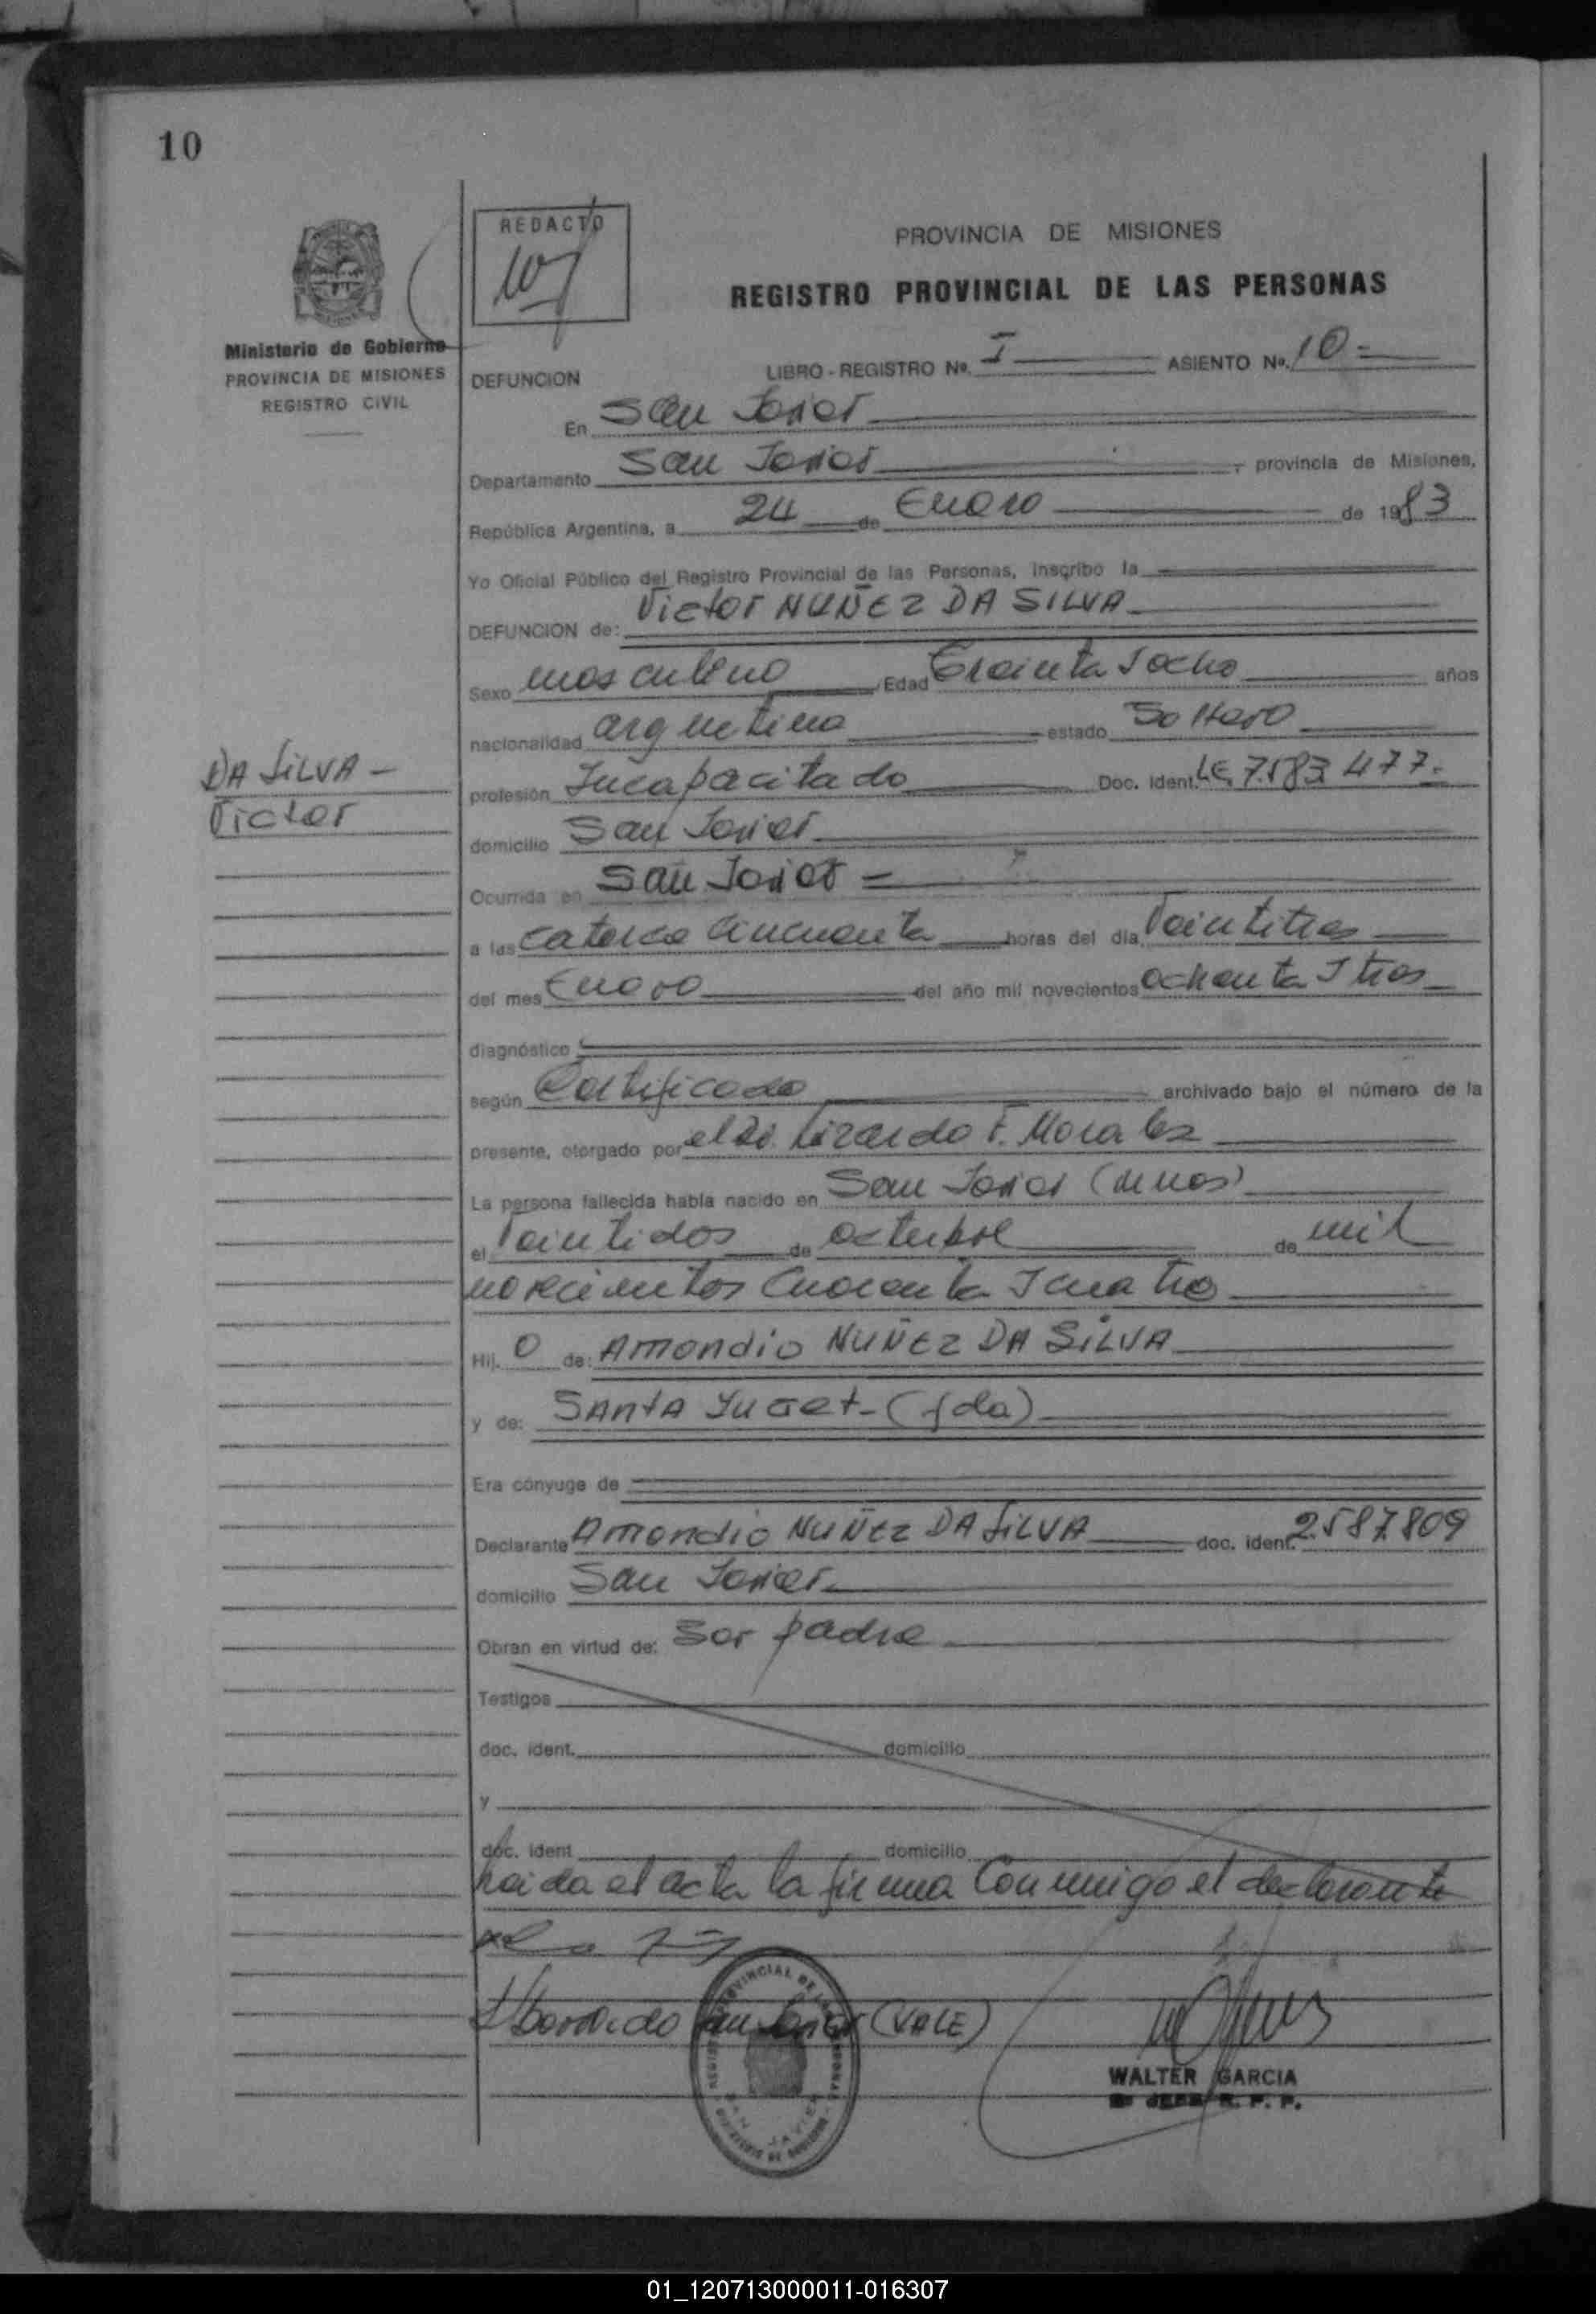 10
REDACTO
PROVINCIA DE MISIONES
REGISTRO PROVINCIAL DE LAS PERSONAS
Ministerio de Gobierno
PROVINCIA DE MISIONES
REGISTRO CIVIL
DEFUNCION LIBRO - REGISTRO Nº. I ASIENTO Nº. 10 =
En San Javier
Departamento San Javier , provincia de Misiones,
República Argentina, a 24 de Enero de 1983
Yo Oficial Público del Registro Provincial de las Personas, inscribo la
DEFUNCION de: Victor NUÑEZ DA SILVA
Sexo masculino Edad Treinta y ocho años
nacionalidad argentina estado Soltero
DA SILVA -
Victor
profesión Incapacitado Doc. Ident. LE. 7.583.477.
domicilio San Javier
Ocurrida en San Javier =
a las catorce cincuenta horas del día Veintitres
del mes Enero del año mil novecientos ochenta y tres
diagnóstico
según Certificado archivado bajo el número de la
presente, otorgado por el Dr. Lizardo F. Morales
La persona fallecida había nacido en San Javier (Mnes)
el Veintidos de octubre de mil
novecientos cuarenta y cuatro
Hij. o de: Amondio NUÑEZ DA SILVA
y de: SANTA (fda)
Era cónyuge de
Declarante Amondio NUÑEZ DA SILVA doc. ident. 2.587.809
domicilio San Javier
Obran en virtud de: Ser padre
Testigos
doc. ident. domicilio
y
doc. ident domicilio
Leida el acta la firma conmigo el declarante
San Javier (VALE)
WALTER GARCIA
JEFE R. P. P.
01_120713000011-016307